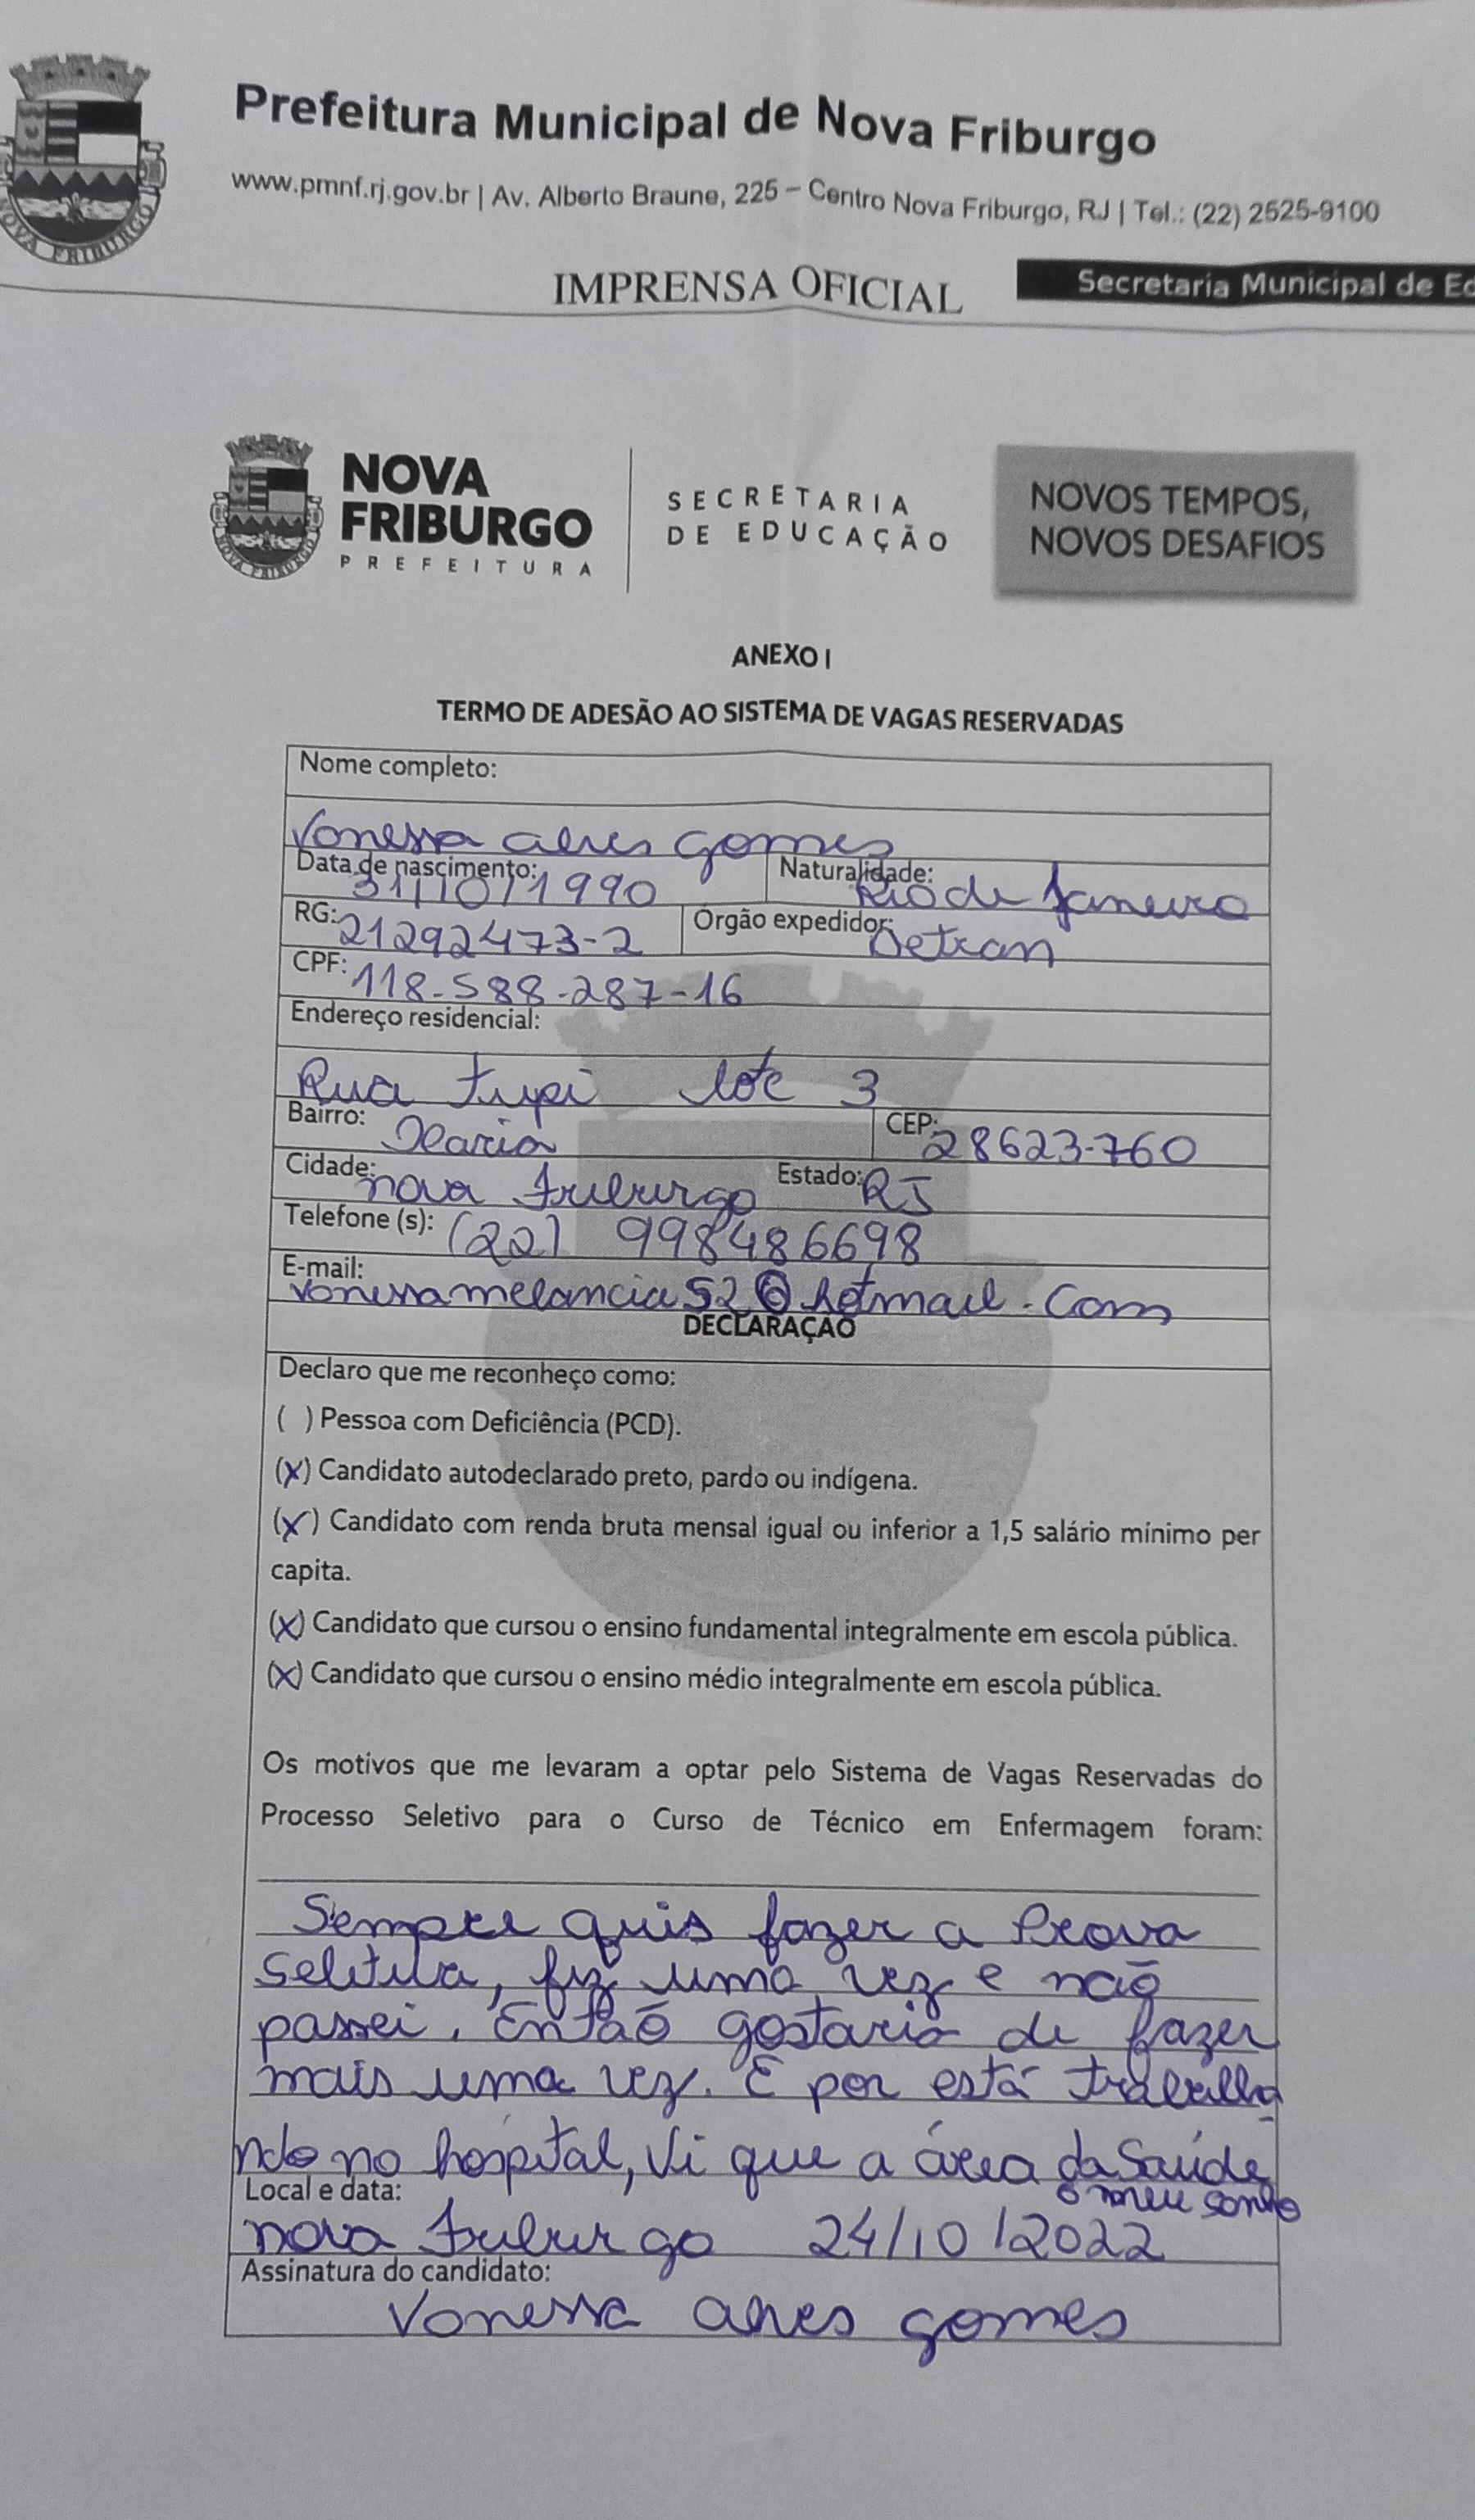 Prefeitura Municipal de Nova Friburgo
www.pmnf.rj.gov.br | Av. Alberto Braune, 225 – Centro Nova Friburgo, RJ | Tel.: (22) 2525-9100
NOVA FRIBURGO
IMPRENSA OFICIAL
Secretaria Municipal de Ed
NOVA
FRIBURGO
PREFEITURA
NOVA FRIBURGO
SECRETARIA
DE EDUCAÇÃO
NOVOS TEMPOS,
NOVOS DESAFIOS
ANEXO I
TERMO DE ADESÃO AO SISTEMA DE VAGAS RESERVADAS
Nome completo:
Vanessa alves gomes
Data de nascimento: 31/10/1990 Naturalidade: Rio de Janeiro
RG: 21292473-2 Órgão expedidor: Detran
CPF: 118-588-287-16
Endereço residencial:
Rua Tupi lote 3
Bairro: Olaria CEP: 28623-760
Cidade: nova Friburgo Estado: RJ
Telefone (s): (22) 998486698
E-mail: vanessamelancia52@hotmail.com
DECLARAÇÃO
Declaro que me reconheço como:
( ) Pessoa com Deficiência (PCD).
(X) Candidato autodeclarado preto, pardo ou indígena.
(X) Candidato com renda bruta mensal igual ou inferior a 1,5 salário mínimo per
capita.
(X) Candidato que cursou o ensino fundamental integralmente em escola pública.
(X) Candidato que cursou o ensino médio integralmente em escola pública.
Os motivos que me levaram a optar pelo Sistema de Vagas Reservadas do
Processo Seletivo para o Curso de Técnico em Enfermagem foram:
Sempre quis fazer a Prova
Seletiva, fiz uma vez e não
passei. Então gostaria de fazer
mais uma vez. E por está trabalha
ndo no hospital, Vi que a área da Saúde
o meu sonho
Local e data:
nova Friburgo 24/10/2022
Assinatura do candidato:
Vanessa alves gomes